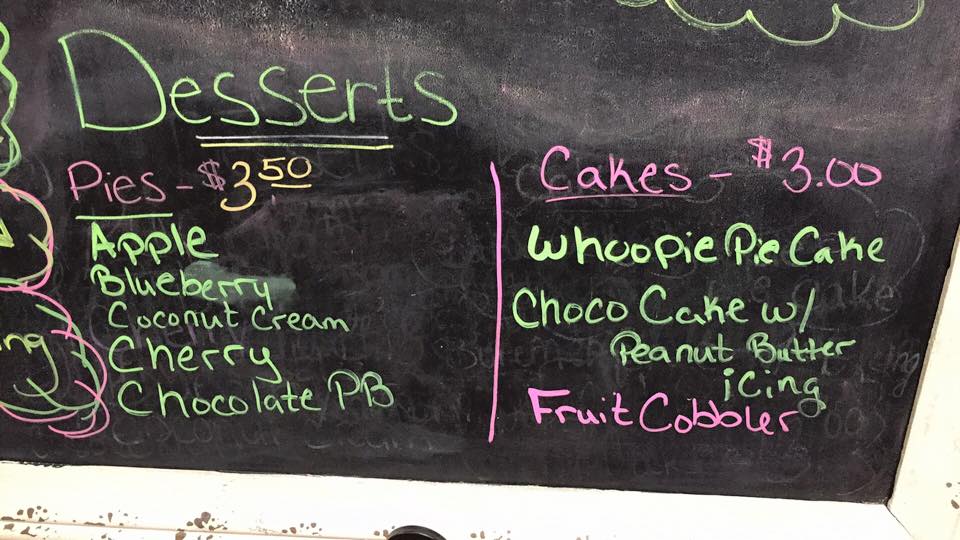 Desserts
Pies - $3.50
Apple
Blueberry
Coconut Cream
Cherry
Chocolate PB
Cakes - $3.00
Whoopie Pie Cake
Choco Cake w/
Peanut Butter
icing
Fruit Cobbler
ing